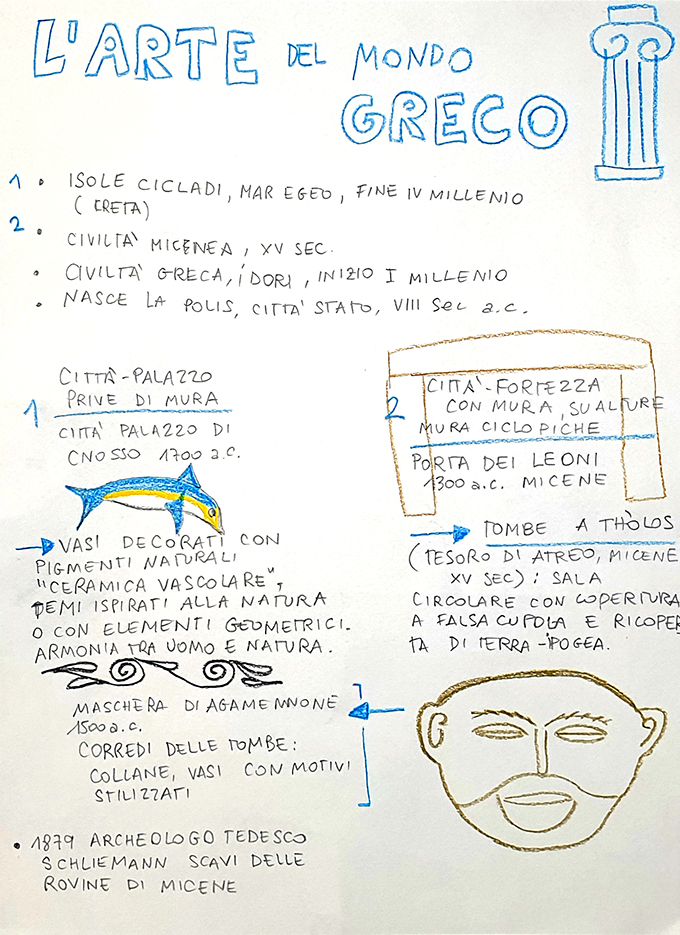 L'ARTE DEL MONDO
GRECO
1 • ISOLE CICLADI, MAR EGEO, FINE IV MILLENIO
(CRETA)
2
• CIVILTA' MICENEA, XV SEC.
• CIVILTA' GRECA, i DORI, INIZIO I MILLENIO
• NASCE LA POLIS, CITTA' STATO, VIII Sec a.c.
CITTÀ-PALAZZO
1 PRIVE DI MURA
CITTÀ PALAZZO DI
CNOSSO 1700 a.c.
→ VASI DECORATI CON
PIGMENTI NATURALI
"CERAMICA VASCOLARE",
TEMI ISPIRATI ALLA NATURA
O CON ELEMENTI GEOMETRICI.
ARMONIA TRA UOMO E NATURA.
MASCHERA DI AGAMENNONE
1500 a.c.
CORREDI DELLE TOMBE:
COLLANE, VASI CON MOTIVI
STILIZZATI
• 1879 ARCHEOLOGO TEDESCO
SCHLIEMANN SCAVI DELLE
ROVINE DI MICENE
CITTA'-FORTEZZA
2 CON MURA, SU ALTURE
MURA CICLOPICHE
PORTA DEI LEONI
1300 a.c. MICENE
→ TOMBE A THÒLOS
(TESORO DI ATREO, MICENE
XV SEC): SALA
CIRCOLARE CON COPERTURA
A FALSA CUPOLA E RICOPER
TA DI TERRA-IPOGEA.